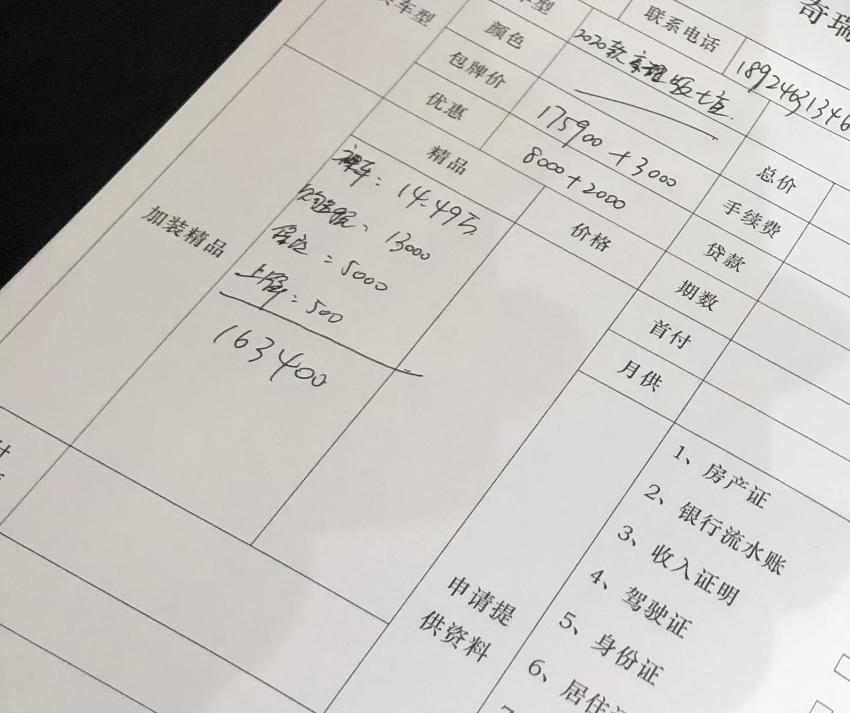 奇瑞
车型
联系电话
18924631346
车型
2020款豪越 旺七座
颜色
包牌价
175900 + 3000
总价
优惠
8000 + 2000
手续费
精品
价格
贷款
加装精品
裸车: 14.49万
购置税、13000
保险: 5000
上牌: 500
163400
期数
首付
月供
付
申请提
供资料
1、房产证
2、银行流水账
3、收入证明
4、驾驶证
5、身份证
6、居住